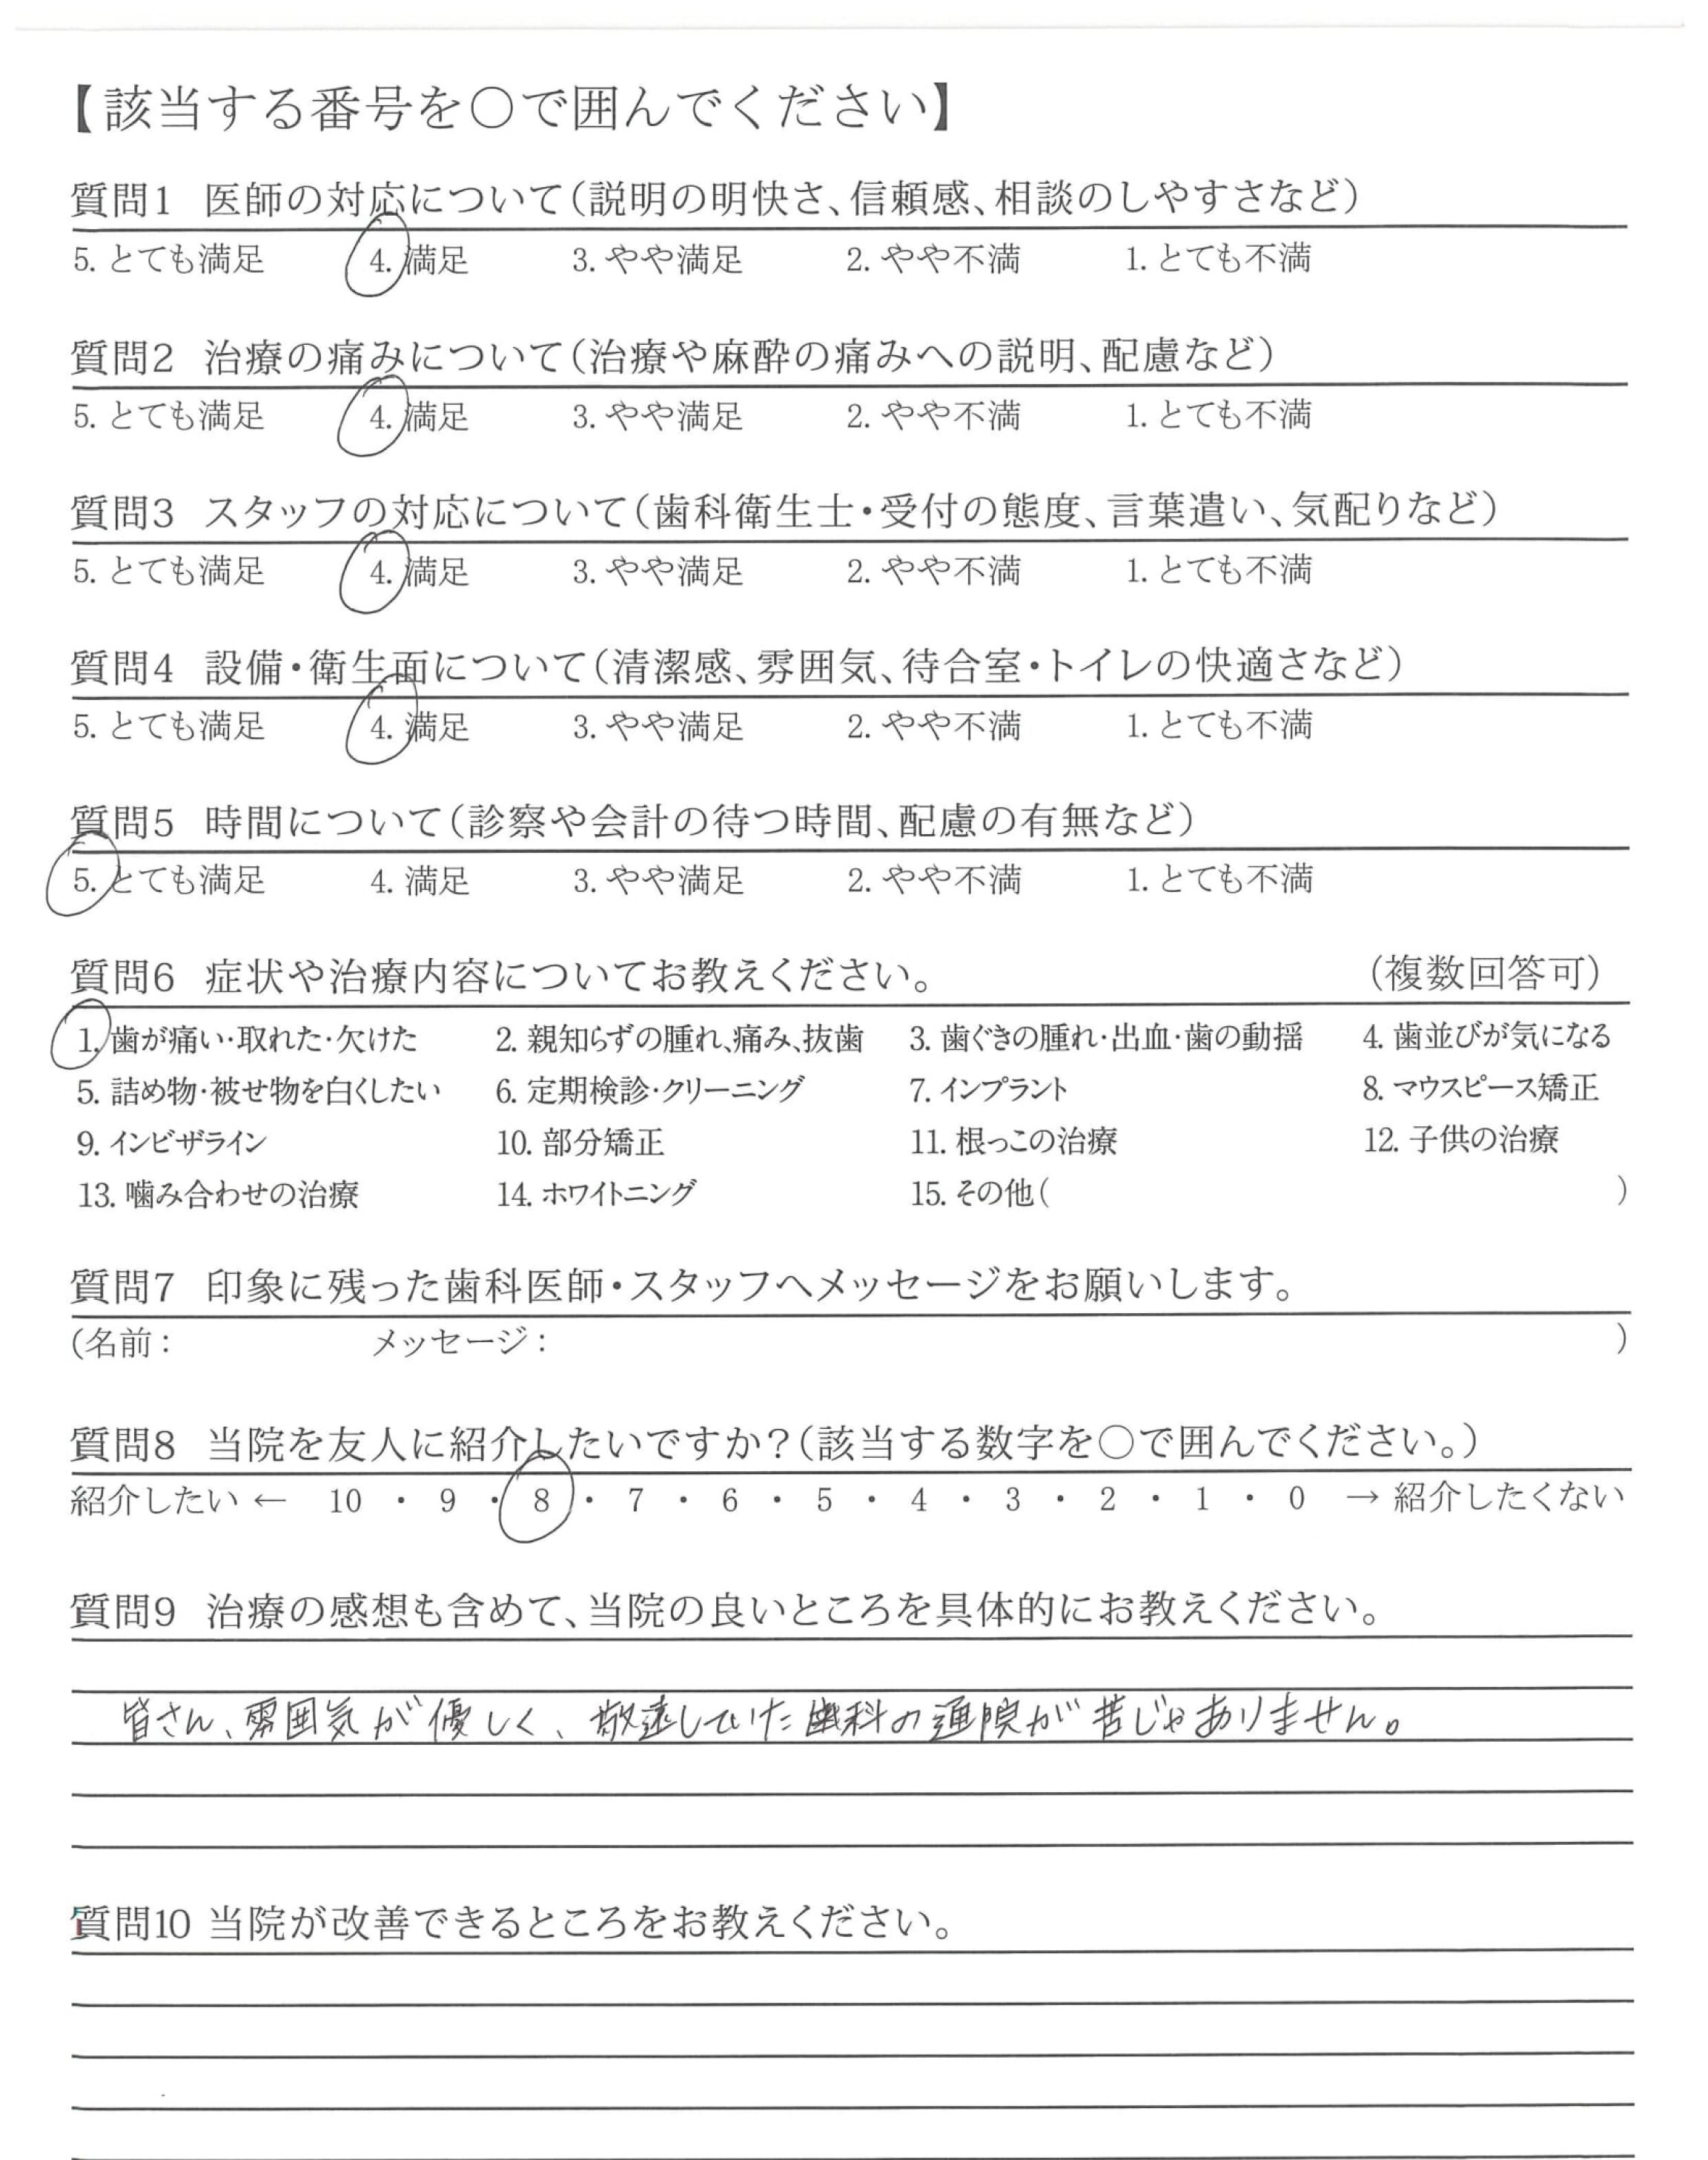 【該当する番号を○で囲んでください】
質問1 医師の対応について（説明の明快さ、信頼感、相談のしやすさなど）
5. とても満足 4. 満足 3. やや満足 2. やや不満 1. とても不満
質問2 治療の痛みについて（治療や麻酔の痛みへの説明、配慮など）
5. とても満足 4. 満足 3. やや満足 2. やや不満 1. とても不満
質問3 スタッフの対応について（歯科衛生士・受付の態度、言葉遣い、気配りなど）
5. とても満足 4. 満足 3. やや満足 2. やや不満 1. とても不満
質問4 設備・衛生面について（清潔感、雰囲気、待合室・トイレの快適さなど）
5. とても満足 4. 満足 3. やや満足 2. やや不満 1. とても不満
質問5 時間について（診察や会計の待つ時間、配慮の有無など）
5. とても満足 4. 満足 3. やや満足 2. やや不満 1. とても不満
質問6 症状や治療内容についてお教えください。 （複数回答可）
1. 歯が痛い・取れた・欠けた 2. 親知らずの腫れ、痛み、抜歯 3. 歯ぐきの腫れ・出血・歯の動揺 4. 歯並びが気になる
5. 詰め物・被せ物を白くしたい 6. 定期検診・クリーニング 7. インプラント 8. マウスピース矯正
9. インビザライン 10. 部分矯正 11. 根っこの治療 12. 子供の治療
13. 噛み合わせの治療 14. ホワイトニング 15. その他（ ）
質問7 印象に残った歯科医師・スタッフへメッセージをお願いします。
（名前： メッセージ： ）
質問8 当院を友人に紹介したいですか？（該当する数字を○で囲んでください。）
紹介したい ← 10 ・ 9 ・ 8 ・ 7 ・ 6 ・ 5 ・ 4 ・ 3 ・ 2 ・ 1 ・ 0 → 紹介したくない
質問9 治療の感想も含めて、当院の良いところを具体的にお教えください。
皆さん、雰囲気が優しく、敬遠していた歯科の通院が苦じゃありません。
質問10 当院が改善できるところをお教えください。